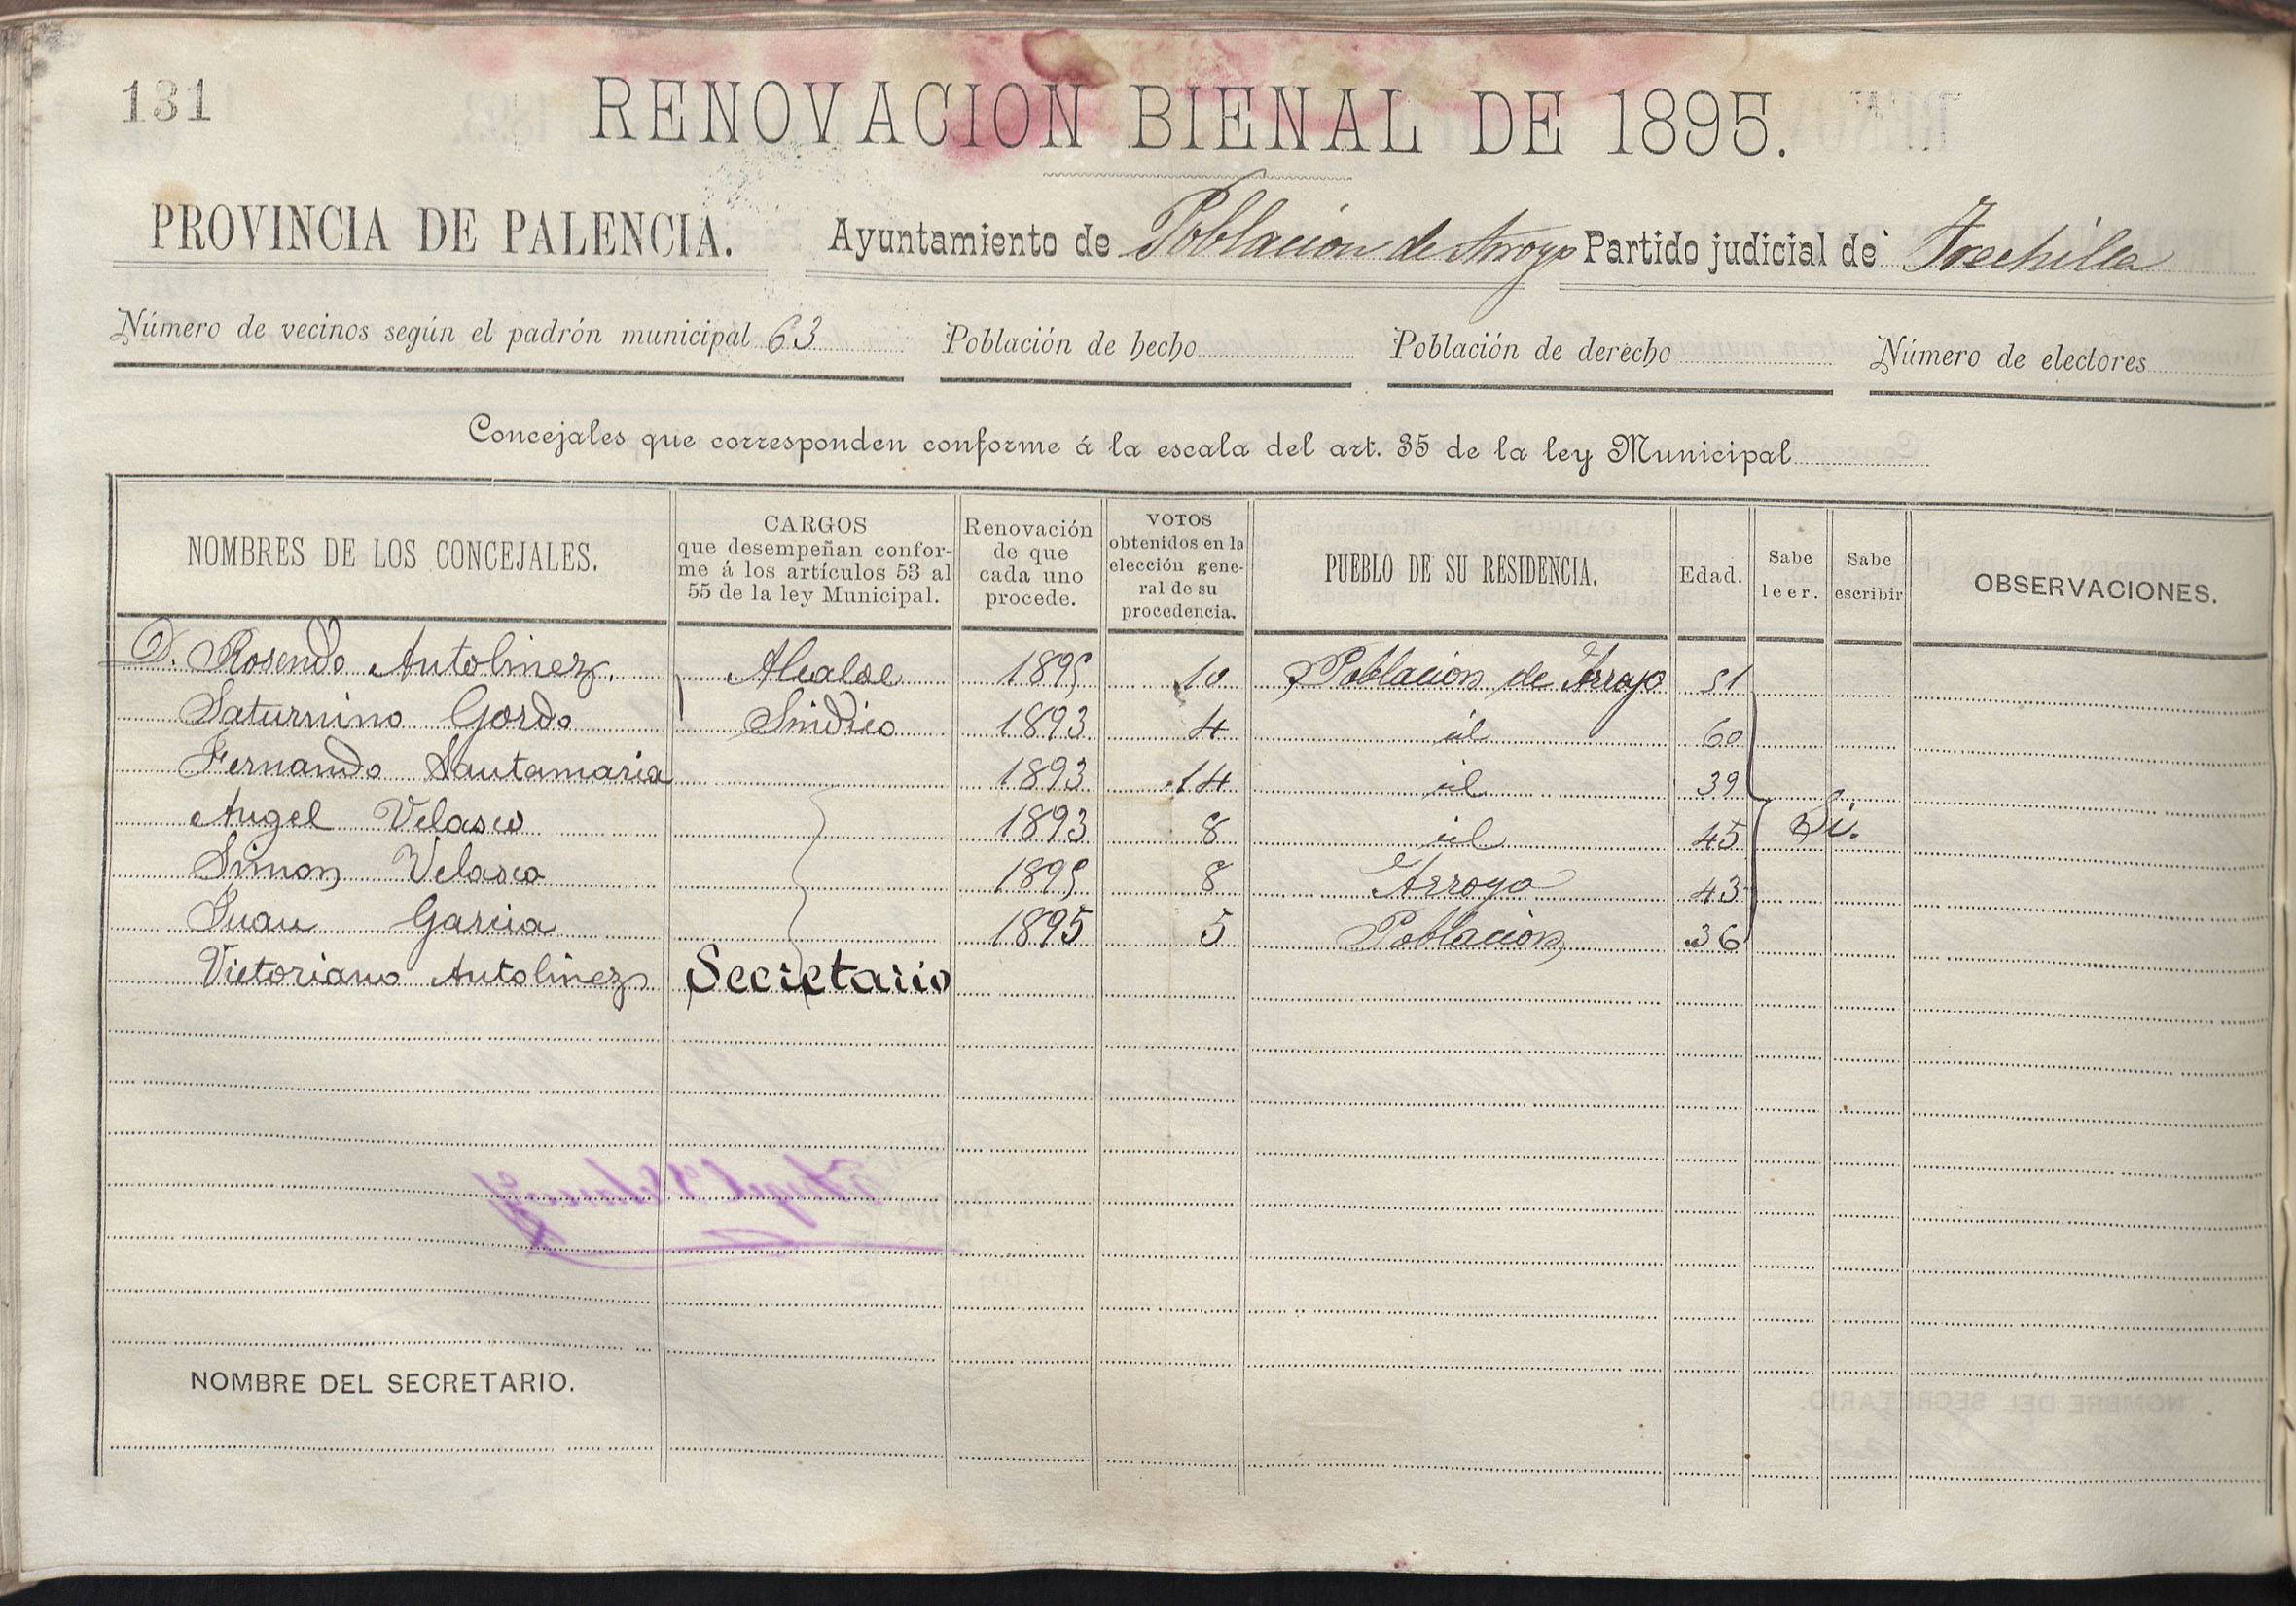 131
RENOVACION BIENAL DE 1895.
PROVINCIA DE PALENCIA. Ayuntamiento de Poblacion de Arroyo Partido judicial de Frechilla
Número de vecinos según el padrón municipal 63 Población de hecho Población de derecho Número de electores
Concejales que corresponden conforme á la escala del art. 35 de la ley Municipal
NOMBRES DE LOS CONCEJALES. CARGOS que desempeñan conforme á los artículos 53 al 55 de la ley Municipal. Renovación de que cada uno procede. VOTOS obtenidos en la elección general de su procedencia. PUEBLO DE SU RESIDENCIA. Edad. Sabe leer. Sabe escribir OBSERVACIONES.
D. Rosendo Autolinez. Alcalde 1895 10 Poblacion de Arroyo 51
Saturnino Gordo Sindico 1893 4 id 60
Fernando Santamaria 1893 14 id 39
Angel Velasco 1893 8 id 45 Si.
Simon Velasco 1895 8 Arroyo 43
Juan Garcia 1895 5 Poblacion 36
Victoriano Autolinez Secretario
NOMBRE DEL SECRETARIO.